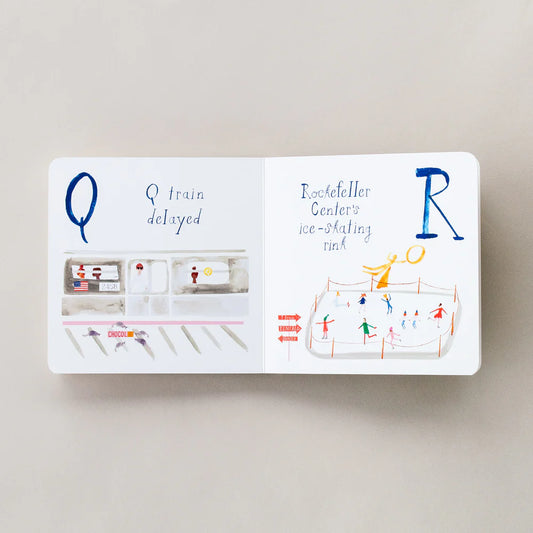 Q
Q train
delayed
2458
CHOCOL
Rockefeller
Center's
ice-skating
rink
R